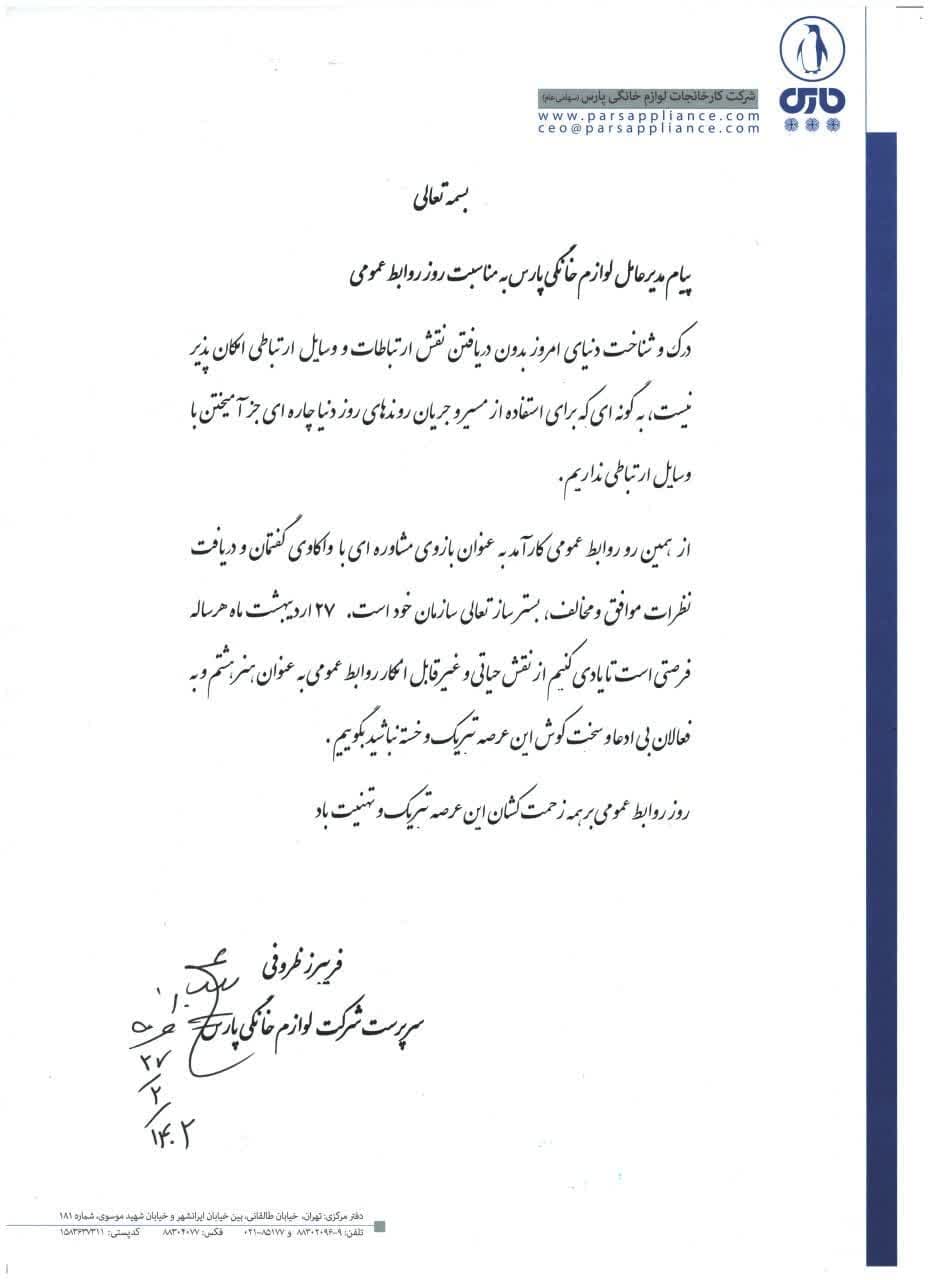 پارس
شرکت کارخانجات لوازم خانگی پارس (سهامی عام)
www.parsappliance.com
ceo@parsappliance.com
بسمه تعالی
پیام مدیرعامل لوازم خانگی پارس به مناسبت روز روابط عمومی
درک و شناخت دنیای امروز بدون دریافتن نقش ارتباطات و وسایل ارتباطی امکان پذیر
نیست، به گونه ای که برای استفاده از مسیر و جریان روندهای روز دنیا چاره ای جز آمیختن با
وسایل ارتباطی نداریم.
از همین رو روابط عمومی کارآمد به عنوان بازوی مشاوره ای با واکاوی گفتمان و دریافت
نظرات موافق و مخالف، بستر ساز تعالی سازمان خود است. ۲۷ اردیبهشت ماه هر ساله
فرصتی است تا یادی کنیم از نقش حیاتی و غیر قابل انکار روابط عمومی به عنوان هنر هشتم و به
فعالان بی ادعا و سخت کوش این عرصه تبریک و خسته نباشید بگوییم.
روز روابط عمومی بر همه زحمت کشان این عرصه تبریک و تهنیت باد
فریبرز ظروفی
سرپرست شرکت لوازم خانگی پارس
۲۷
۲
۱۴۰۲
دفتر مرکزی: تهران، خیابان طالقانی، بین خیابان ایرانشهر و خیابان شهید موسوی، شماره ۱۸۱
تلفن: ۹-۸۸۳۰۲۰۹۶ و ۸۵۱۷۷-۰۲۱ فکس: ۸۸۳۰۴۰۷۷ کدپستی: ۱۵۸۳۶۳۷۳۱۱